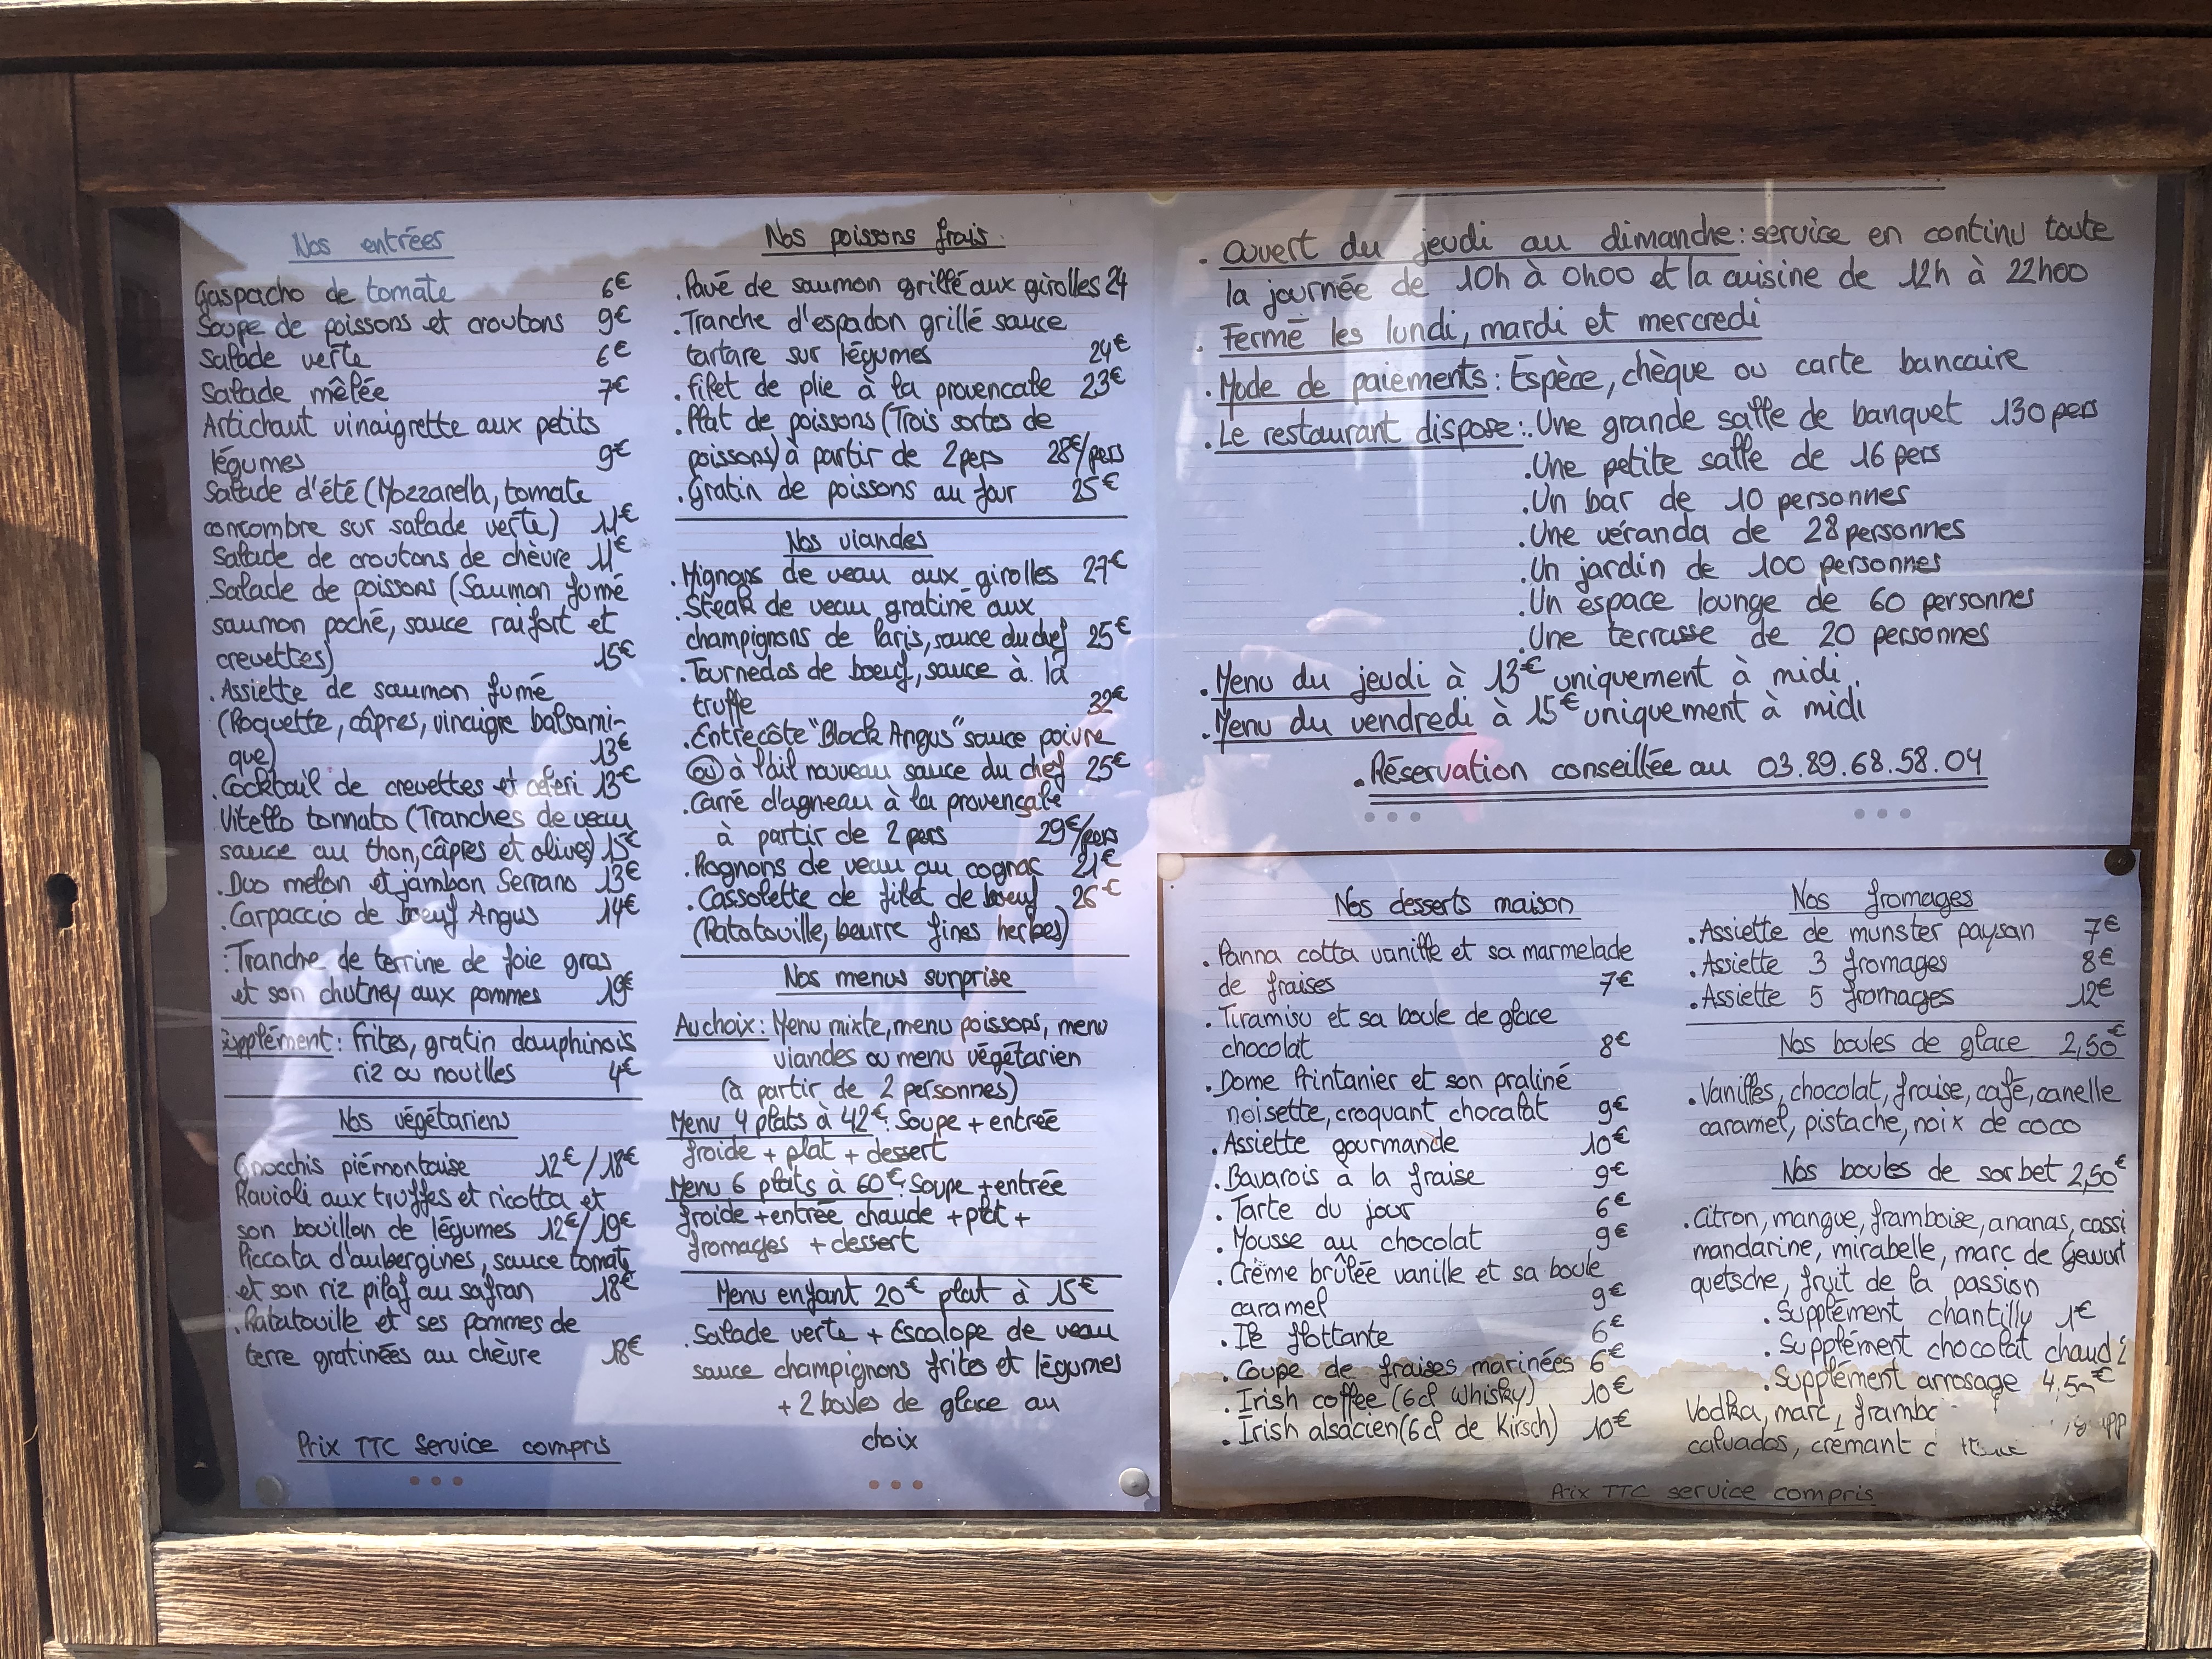 Nos entrées
Gaspacho de tomate 6€
Soupe de poissons et croutons 9€
Salade verte 6€
Salade mêlée 7€
Artichaut vinaigrette aux petits
légumes 9€
Salade d'été (Mozzarella, tomate
concombre sur salade verte) 11€
Salade de croutons de chèvre 11€
Salade de poissons (Saumon fumé
saumon poché, sauce raifort et
crevettes) 15€
. Assiette de saumon fumé
(Roquette, câpres, vinaigre balsami-
que) 13€
. Cocktail de crevettes et celeri 13€
Vitello tonnato (Tranches de veau
sauce au thon, câpres et olives) 15€
. Duo melon et jambon Serrano 13€
. Carpaccio de boeuf Angus 14€
. Tranche de terrine de foie gras
et son chutney aux pommes 19€
Supplément : frites, gratin dauphinois
riz ou nouilles 4€
Nos végétariens
Gnocchis piémontaise 12€/18€
Ravioli aux truffes et ricotta et
son bouillon de légumes 12€/19€
Piccata d'aubergines, sauce tomate
et son riz pilaf au safran 18€
. Ratatouille et ses pommes de
terre gratinées au chèvre 18€
Prix TTC Service compris
Nos poissons frais
. Pavé de saumon grillé aux girolles 24
. Tranche d'espadon grillé sauce
tartare sur légumes 24€
. filet de plie à la provencale 23€
. Plat de poissons (Trois sortes de
poissons) à partir de 2 pers 28€/pers
. Gratin de poissons au four 25€
Nos viandes
. Mignons de veau aux girolles 27€
. Steak de veau gratiné aux
champignons de Paris, sauce du chef 25€
. Tournedos de boeuf, sauce à la
truffe 32€
. Entrecôte "Black Angus" sauce poivre
ou à l'ail nouveau sauce du chef 25€
. Carré d'agneau à la provençale
à partir de 2 pers 29€/pers
. Rognons de veau au cognac 21€
. Cassolette de filet de boeuf 26€
(Ratatouille, beurre fines herbes)
Nos menus surprise
Au choix : Menu mixte, menu poissons, menu
viandes ou menu végétarien
(à partir de 2 personnes)
Menu 4 plats à 42€ : Soupe + entrée
froide + plat + dessert
Menu 6 plats à 60€ : Soupe + entrée
froide + entrée chaude + plat +
fromages + dessert
Menu enfant 20€ plat à 15€
. Salade verte + Escalope de veau
sauce champignons frites et légumes
+ 2 boules de glace au
choix
. Ouvert du jeudi au dimanche : service en continu toute
la journée de 10h à 0h00 et la cuisine de 12h à 22h00
. Fermé les lundi, mardi et mercredi
. Mode de paiements : Espèce, chèque ou carte bancaire
. Le restaurant dispose : . Une grande salle de banquet 130 pers
. Une petite salle de 16 pers
. Un bar de 10 personnes
. Une véranda de 28 personnes
. Un jardin de 100 personnes
. Un espace lounge de 60 personnes
. Une terrasse de 20 personnes
. Menu du jeudi à 13€ uniquement à midi.
. Menu du vendredi à 15€ uniquement à midi
. Réservation conseillée au 03.89.68.58.04
Nos desserts maison
. Panna cotta vanille et sa marmelade
de fraises 7€
. Tiramisu et sa boule de glace
chocolat 8€
. Dome Printanier et son praliné
noisette, croquant chocolat 9€
. Assiette gourmande 10€
. Bavarois à la fraise 9€
. Tarte du jour 6€
. Mousse au chocolat 9€
. Crème brûlée vanille et sa boule
caramel 9€
. Ile flottante 6€
. Coupe de fraises marinées 6€
. Irish coffee (6cl whisky) 10€
. Irish alsacien (6cl de Kirsch) 10€
Nos fromages
. Assiette de munster paysan 7€
. Assiette 3 fromages 8€
. Assiette 5 fromages 12€
Nos boules de glace 2,50€
. Vanilles, chocolat, fraise, café, canelle
caramel, pistache, noix de coco
Nos boules de sorbet 2,50€
. Citron, mangue, framboise, ananas, cassi
mandarine, mirabelle, marc de Gewurt
quetsche, fruit de la passion
. Supplément chantilly 1€
. Supplément chocolat chaud
. Supplément arrosage
Vodka, marc,
calvados, crémant
Prix TTC service compris